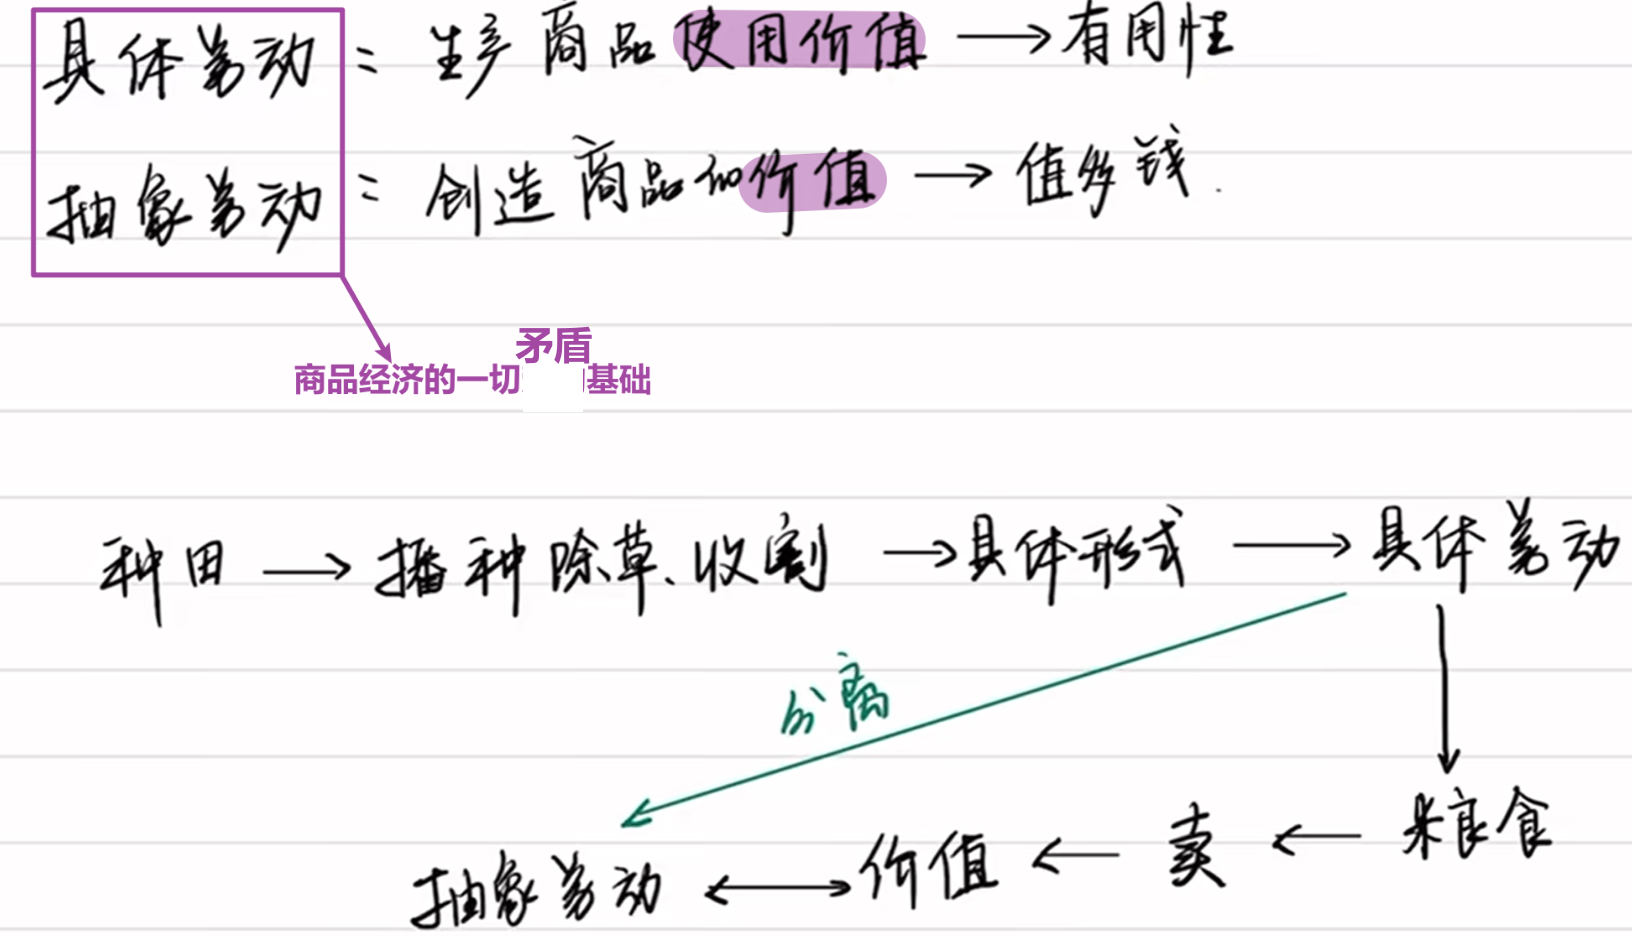 具体劳动 = 生产商品使用价值 → 有用性
抽象劳动 = 创造商品的价值 → 值多钱.
矛盾
商品经济的一切 基础
种田 → 播种除草、收割 → 具体形式 → 具体劳动
分离
抽象劳动 ↔ 价值 ← 卖 ← 粮食